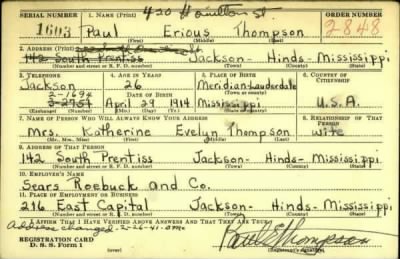 420 Hamilton St
SERIAL NUMBER 1. NAME (Print) ORDER NUMBER
1603 Paul Erious Thompson 2848
(First) (Middle) (Last)
2. ADDRESS (Print)
142 South Prentiss Jackson - Hinds - Mississippi
(Number and street or R. F. D. number) (Town) (County) (State)
3. TELEPHONE 4. AGE IN YEARS 5. PLACE OF BIRTH 6. COUNTRY OF CITIZENSHIP
Jackson 26 Meridian-Lauderdale
2-1694 DATE OF BIRTH (Town or county)
3-2957 April 29 1914 Mississippi U.S.A.
(Exchange) (Number) (Mo.) (Day) (Yr.) (State or country)
7. NAME OF PERSON WHO WILL ALWAYS KNOW YOUR ADDRESS 8. RELATIONSHIP OF THAT PERSON
Mrs. Katherine Evelyn Thompson wife
(Mr., Mrs., Miss) (First) (Middle) (Last)
9. ADDRESS OF THAT PERSON
142 South Prentiss Jackson- Hinds- Mississippi
(Number and street or R. F. D. number) (Town) (County) (State)
10. EMPLOYER'S NAME
Sears Roebuck and Co.
11. PLACE OF EMPLOYMENT OR BUSINESS
216 East Capital Jackson- Hinds- Mississippi
(Number and street or R. F. D. number) (Town) (County) (State)
I AFFIRM THAT I HAVE VERIFIED ABOVE ANSWERS AND THAT THEY ARE TRUE.
Address changed 2-26-41
REGISTRATION CARD
D. S. S. FORM 1
Paul E Thompson